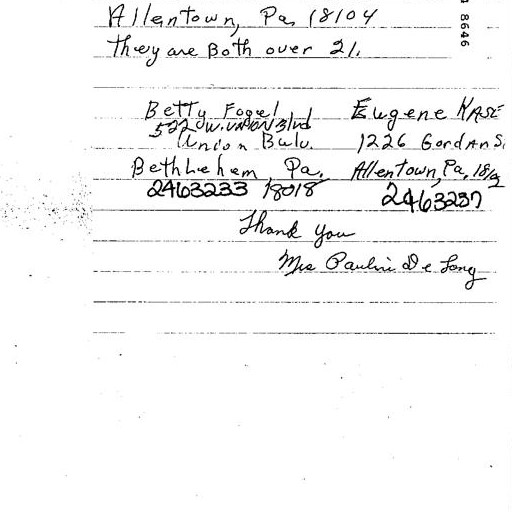 Allentown, Pa, 18104
They are Both over 21.
8646
Betty Fogel
522 W. UNION Blvd
Union Bulv.
Bethlehem, Pa.
2463233 18018
Eugene KASE
1226 Gordan S
Allentown, Pa, 181
2463237
Thank You
Mrs Pauline De Long